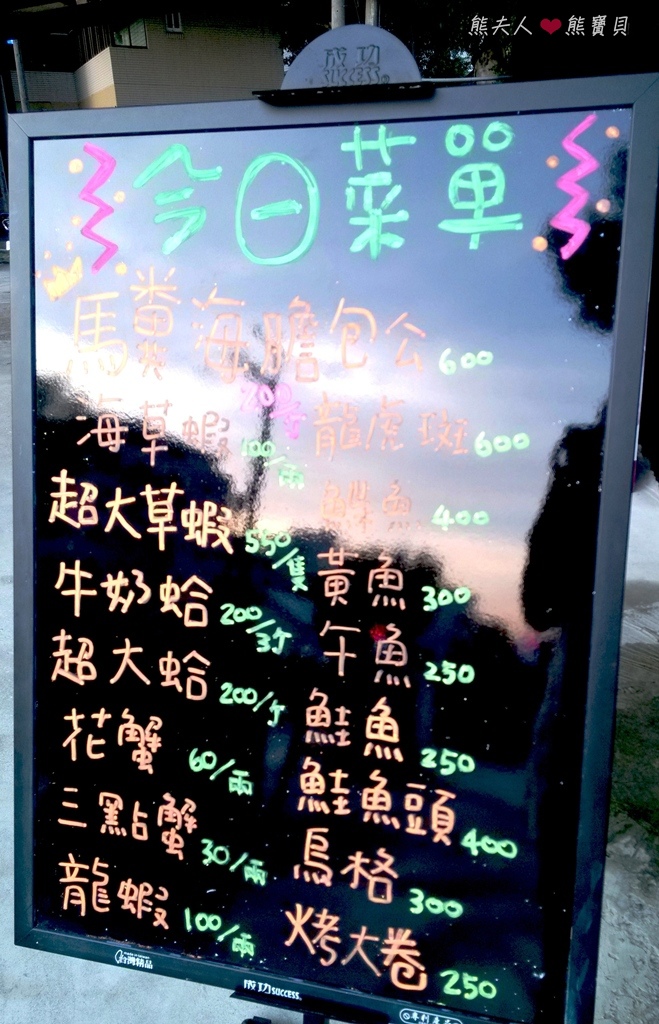 熊夫人❤熊寶貝
成功
SUCCESS
今日菜單
馬糞海膽包公 600
海草蝦 100/兩
龍虎斑 600
400
超大草蝦 550/隻
黃魚 300
牛奶蛤 200/3斤
午魚 250
超大蛤 200/斤
鮭魚 250
花蟹 60/兩
鮭魚頭 400
三點蟹 30/兩
烏格 300
龍蝦 100/兩
烤大卷 250
台灣精品
成功 SUCCESS